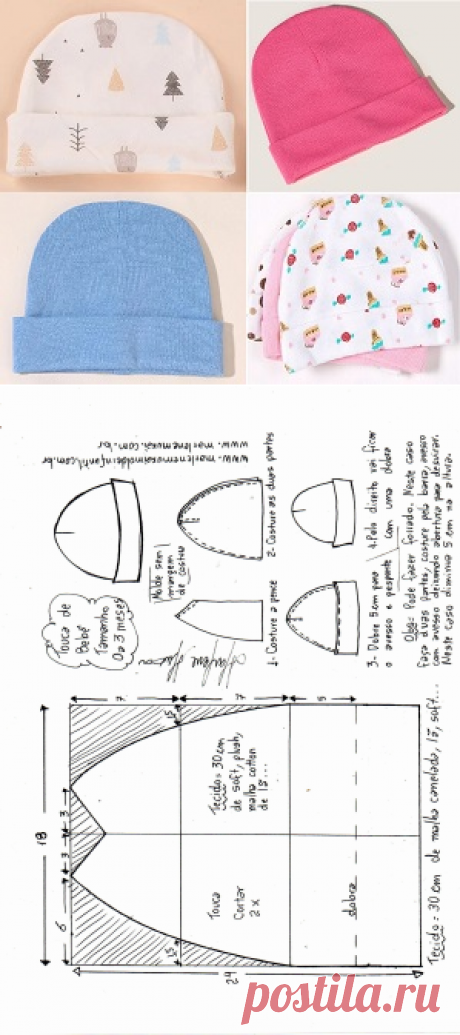 www.marlenemukaimoldeinfantil.com.br
www.marlenemukai.com.br
Touca de
Bebê
Tamanho
0 a 3 meses
Molde sem
margem
de costura
1- Costure a pence
2- Costure as duas partes
3- Dobre 5 cm para
o avesso e pesponte
4. Pelo direito vai ficar
com uma dobra
Obs: Pode fazer forrado. Neste caso
faça duas partes, costure pela barra, avesso
com avesso deixando abertura para desvirar.
Neste caso diminua 5 cm na altura.
7
7
5
15
18
3
3
6
15
24
Tecido = 30 cm
de soft, plush,
malha cotton
de lã...
Touca
Cortar
2x
dobra
Tecido = 30 cm de malha canelada, lã, soft...
postila.ru